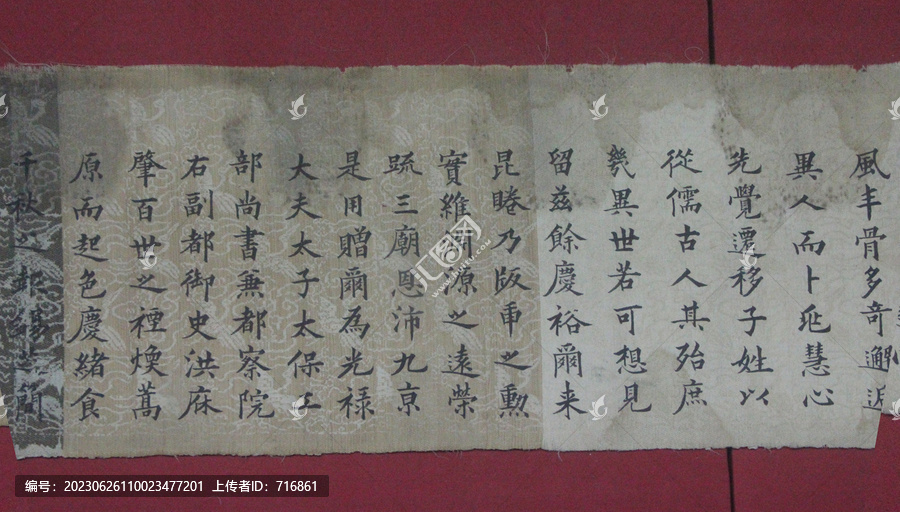 風丰骨多奇邂近
異人而卜兆慧心
先覺遷移子姓以
從儒古人其殆庶
幾異世若可想見
留茲餘慶裕爾来
昆睠乃版甫之勳
實維濬源之遠榮
疏三廟恩沛九京
是用贈爾為光禄
大夫太子太保工
部尚書兼都察院
右副都御史洪庥
肇百世之禋焕蒿
原而起色慶緒食
千秋之報
汇图网
www.huitu.com
编号：20230626110023477201 上传者ID：716861